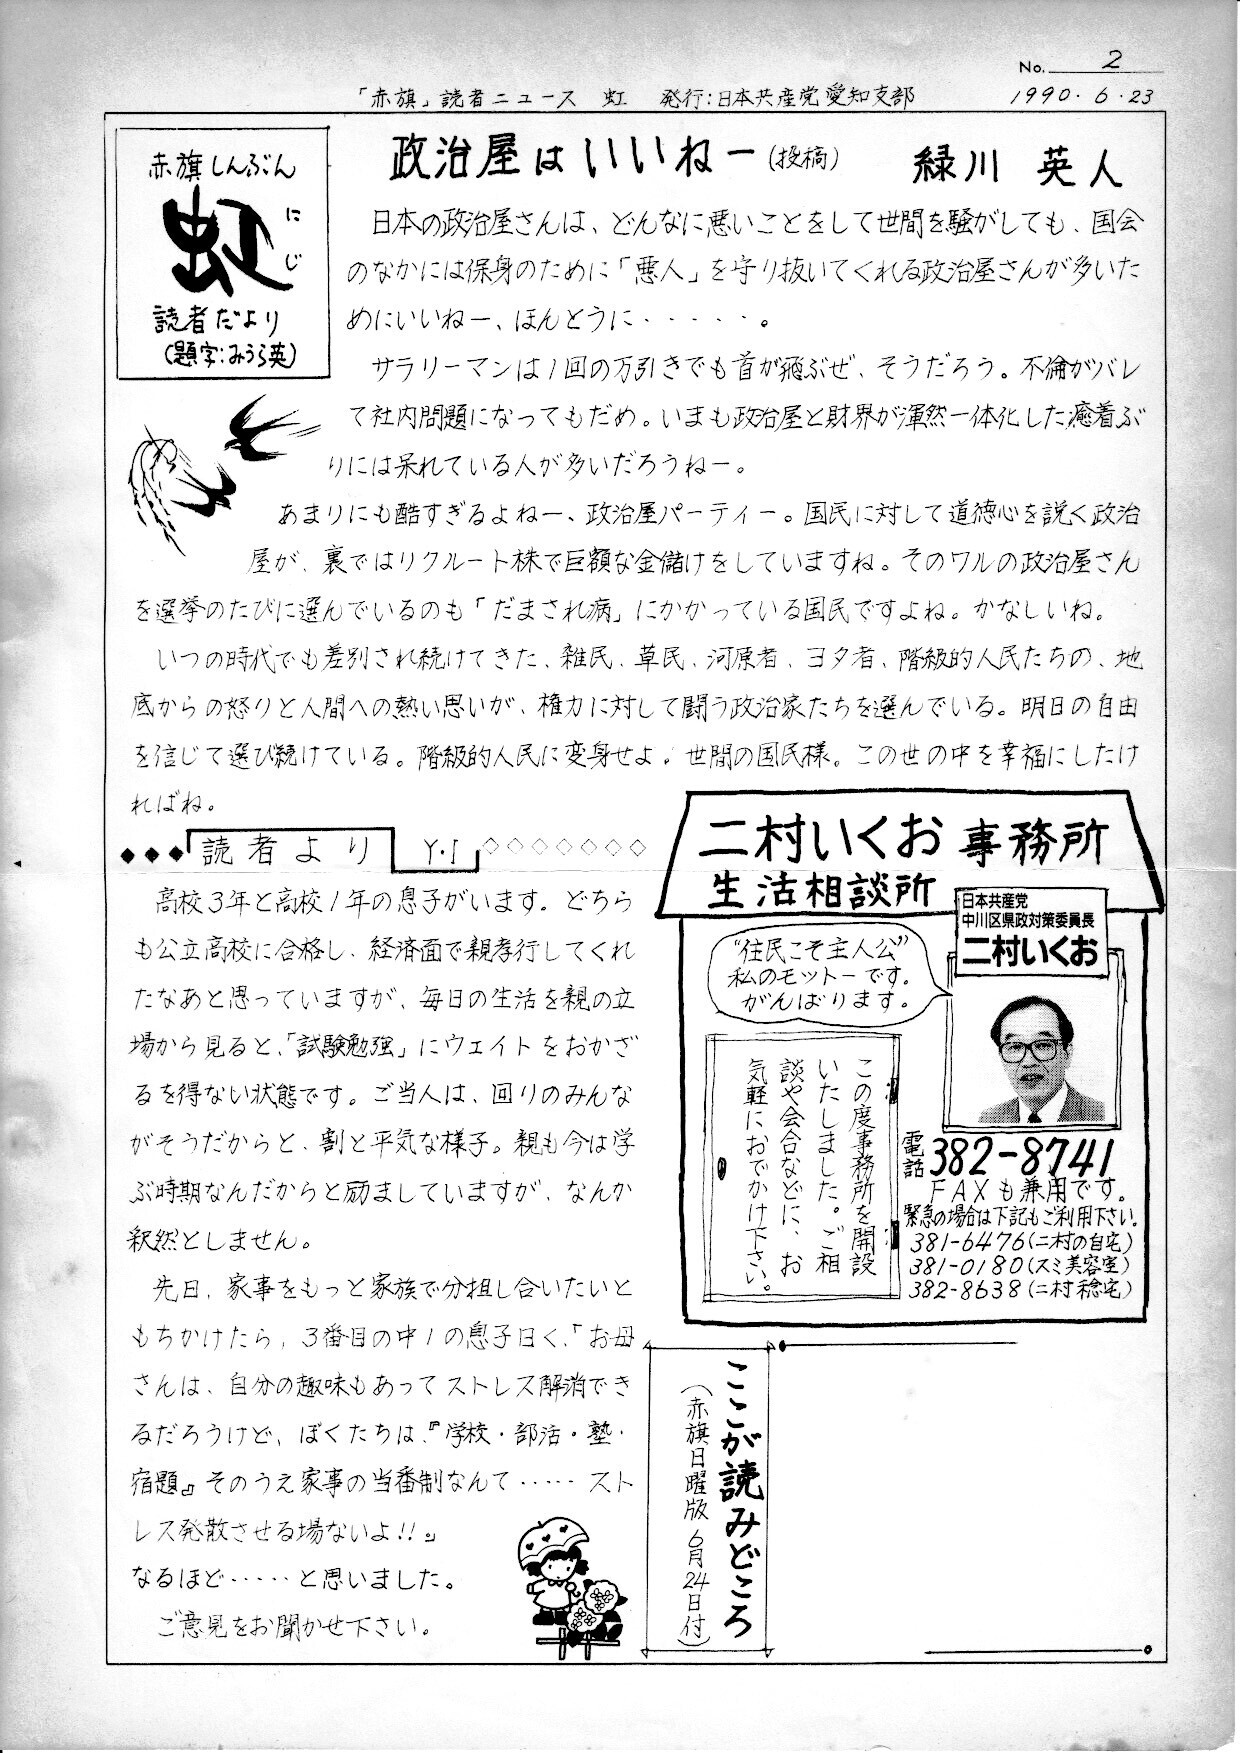 No. 2
「赤旗」読者ニュース 虹 発行:日本共産党愛知支部 1990.6.23
赤旗しんぶん
虹
にじ
読者だより
(題字:みうら英)
政治屋はいいねー(投稿) 緑川 英人
日本の政治屋さんは、どんなに悪いことをして世間を騒がしても、国会
のなかには保身のために「悪人」を守り抜いてくれる政治屋さんが多いた
めにいいねー、ほんとうに・・・・・。
サラリーマンは1回の万引きでも首が飛ぶぜ、そうだろう。不倫がバレ
て社内問題になってもだめ。いまも政治屋と財界が渾然一体化した癒着ぶ
りには呆れている人が多いだろうねー。
あまりにも酷すぎるよねー、政治屋パーティー。国民に対して道徳心を説く政治
屋が、裏ではリクルート株で巨額な金儲けをしていますね。そのワルの政治屋さん
を選挙のたびに選んでいるのも「だまされ病」にかかっている国民ですよね。かなしいね。
いつの時代でも差別され続けてきた、雑民、草民、河原者、ヨタ者、階級的人民たちの、地
底からの怒りと人間への熱い思いが、権力に対して闘う政治家たちを選んでいる。明日の自由
を信じて選び続けている。階級的人民に変身せよ!世間の国民様。この世の中を幸福にしたけ
ればね。
◆◆◆読者より Y・I ◇◇◇◇◇◇◇
高校3年と高校1年の息子がいます。どちら
も公立高校に合格し、経済面で親孝行してくれ
たなあと思っていますが、毎日の生活を親の立
場から見ると、「試験勉強」にウェイトをおかざ
るを得ない状態です。ご当人は、回りのみんな
がそうだからと、割と平気な様子。親も今は学
ぶ時期なんだからと励ましていますが、なんか
釈然としません。
先日、家事をもっと家族で分担し合いたいと
もちかけたら、3番目の中1の息子曰く、「お母
さんは、自分の趣味もあってストレス解消でき
るだろうけど、ぼくたちは、『学校・部活・塾・
宿題』そのうえ家事の当番制なんて・・・・・ スト
レス発散させる場ないよ!!」
なるほど・・・・・と思いました。
ご意見をお聞かせ下さい。
二村いくお 事務所
生活相談所
日本共産党
中川区県政対策委員長
二村いくお
"住民こそ主人公"
私のモットーです。
がんばります。
この度事務所を開設
いたしました。ご相
談や会合などに、お
気軽におでかけ下さい。
電話 382-8741
FAXも兼用です。
緊急の場合は下記もご利用下さい。
381-6476(二村の自宅)
381-0180(スミ美容室)
382-8638(二村稔宅)
ここが読みどころ
(赤旗日曜版 6月24日付)